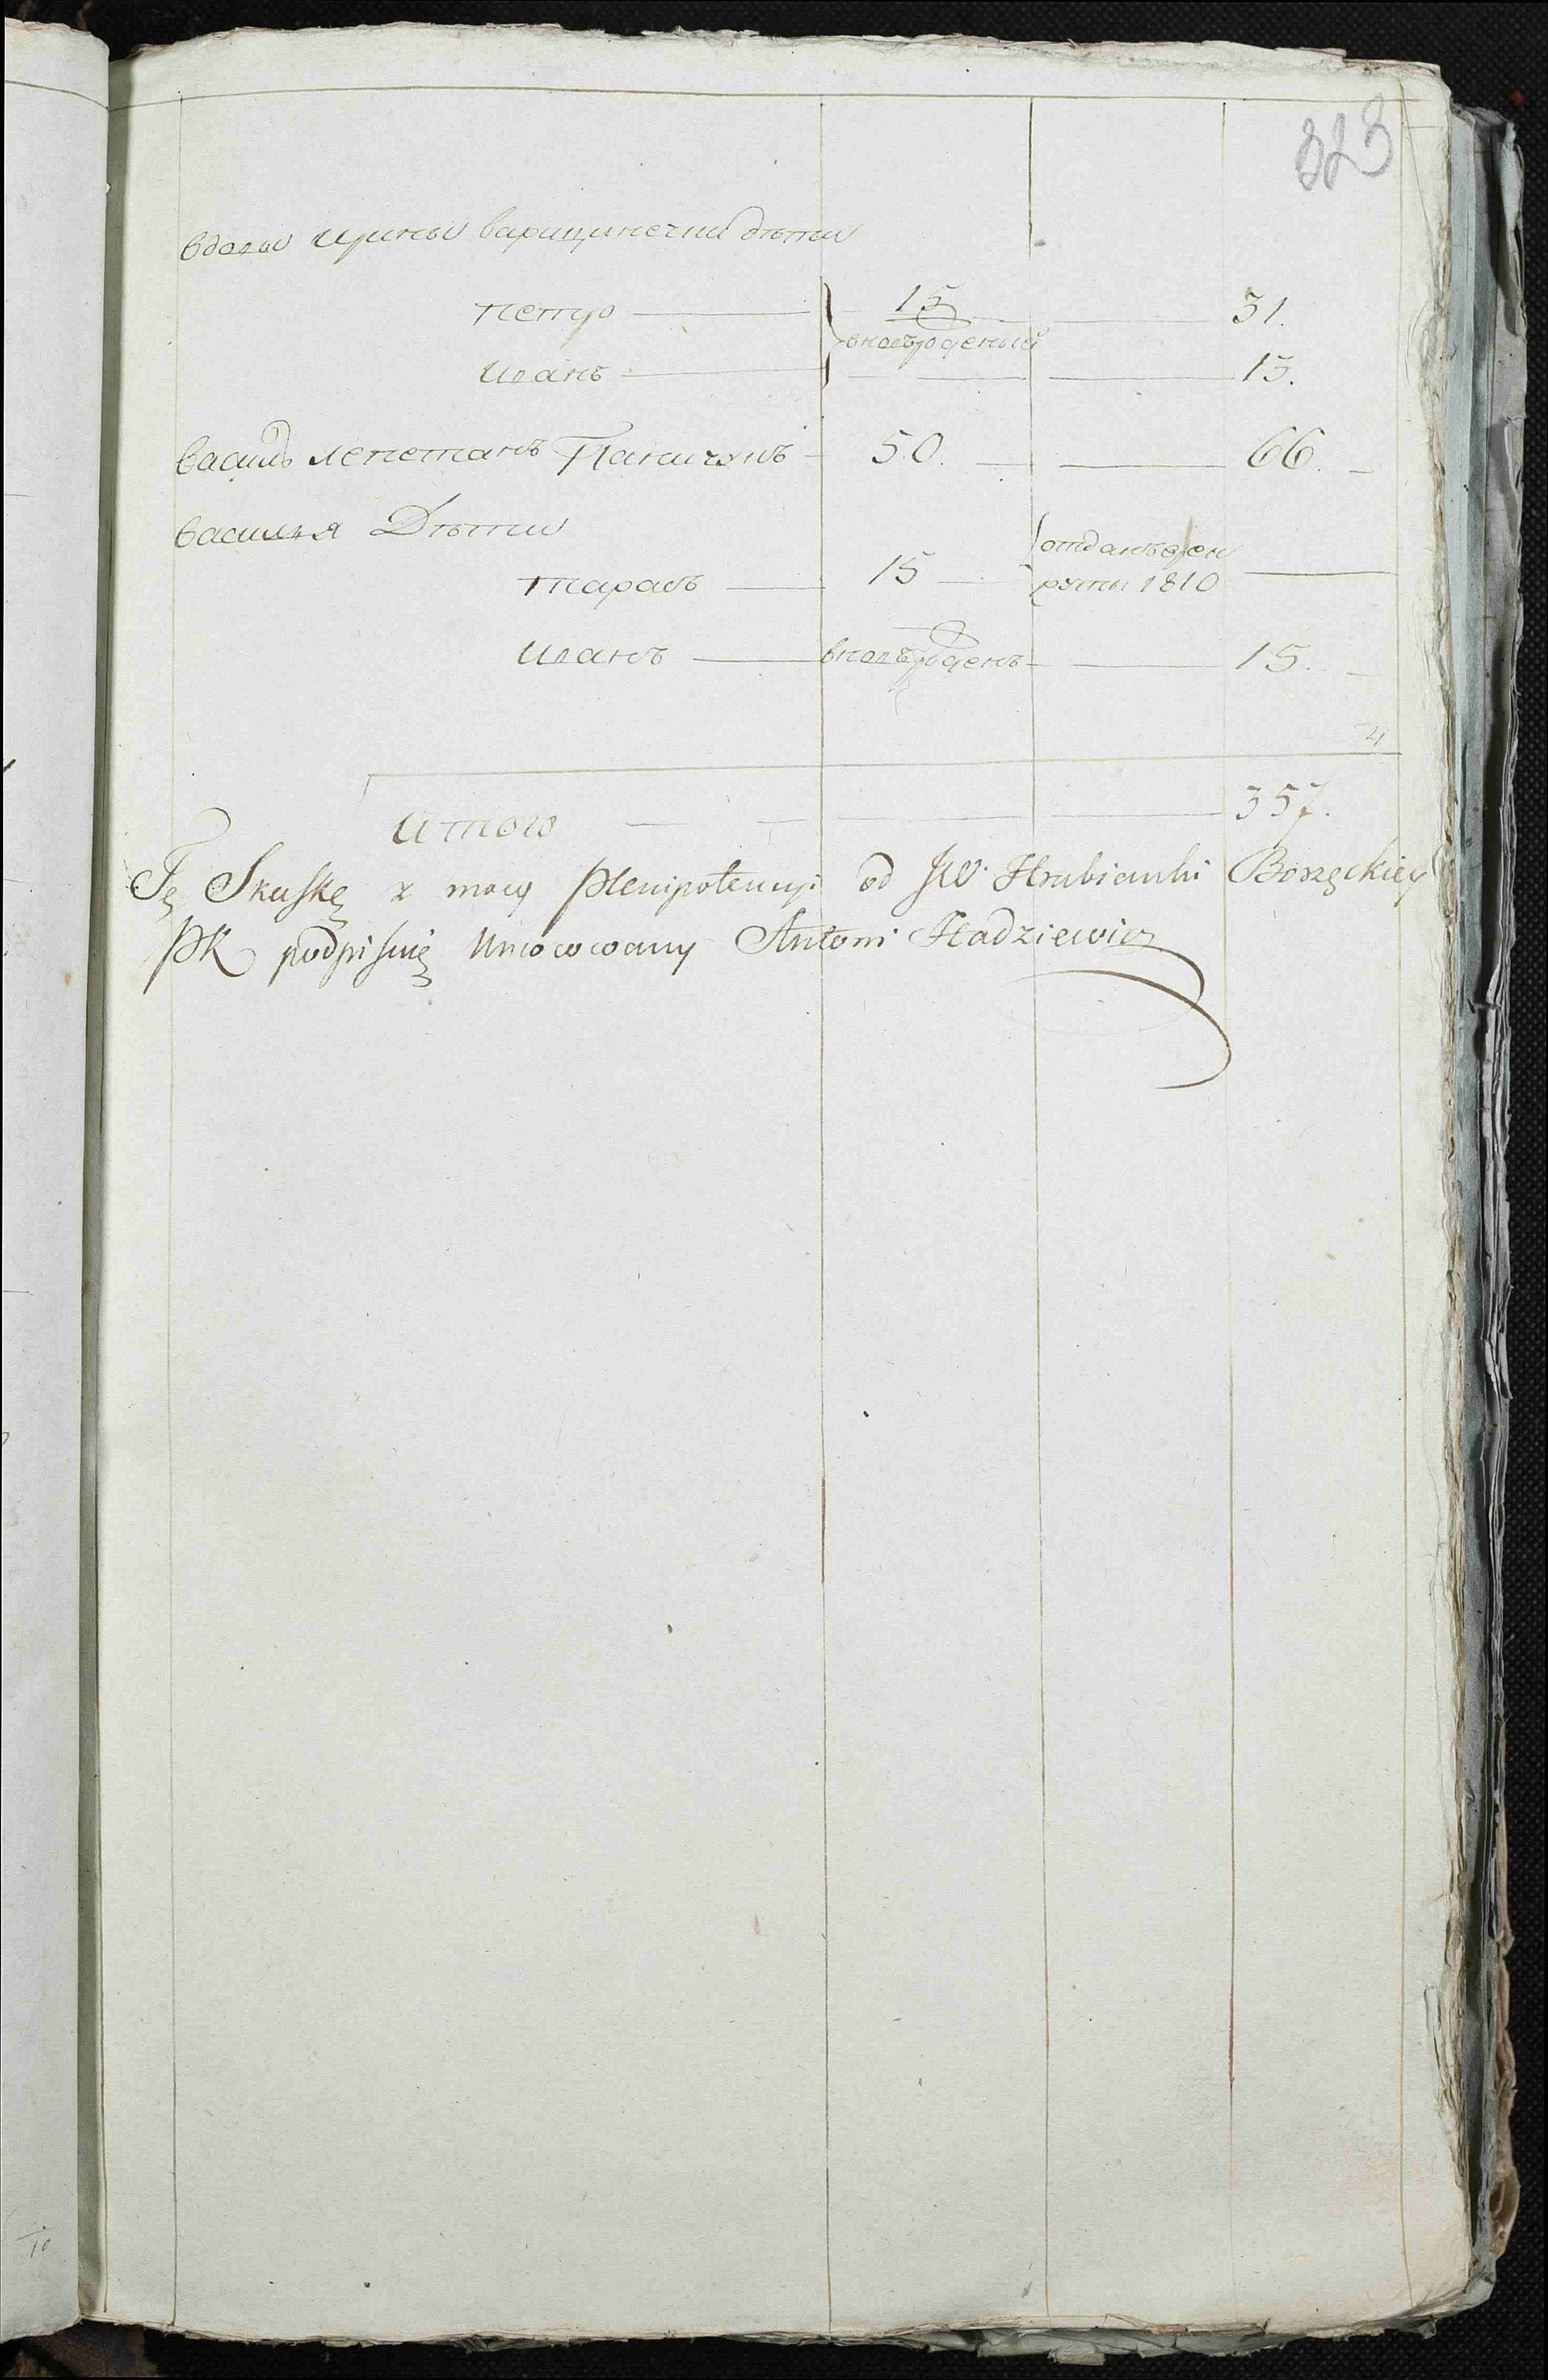 323
вдовы ирины варицинечии дѣти
петро 15 31.
вновърожений
иванъ 15.
василь лепетанъ Паничукъ 50. 66.
василия Дѣти
отданъврек
тарасъ 15 руты 1810
иванъ вновърожденъ 15.
4
итого 357.
Tę Skaskę z mocy Plenipotencyi od JW. Hrabianki Borzęckiey
PK podpisuię Umocowany Antoni Hadziewicz